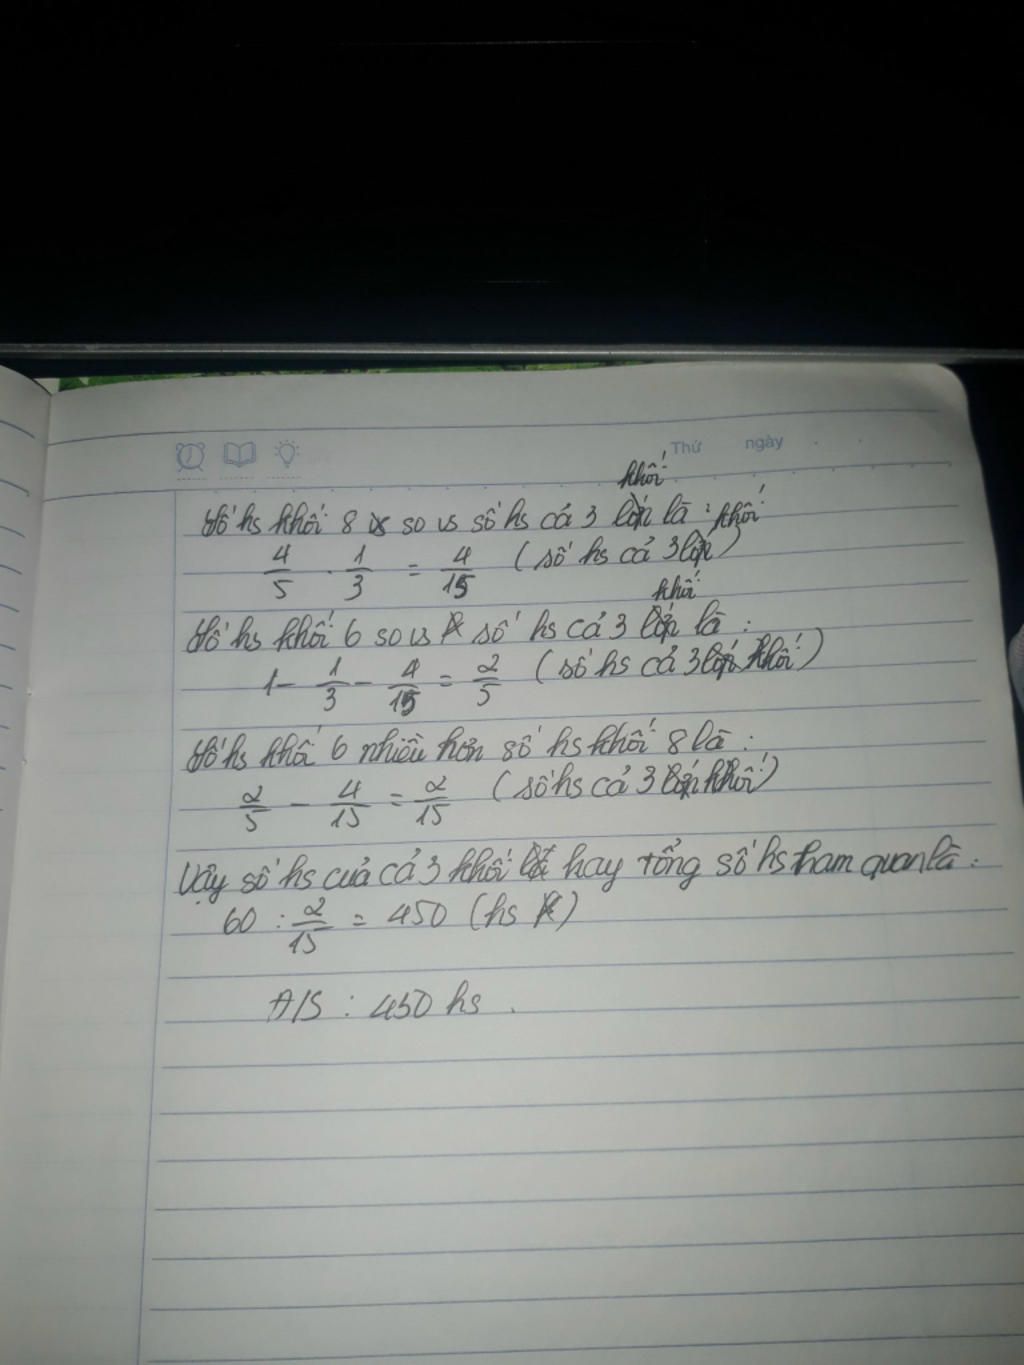 Thứ ngày
khối
Số hs khối 8 so vs số hs cả 3 lớp là : khối
4/5 . 1/3 = 4/15 (số hs cả 3 lớp)
khối
Số hs khối 6 so vs số hs cả 3 lớp là :
1 - 1/3 - 4/15 = 2/5 (số hs cả 3 lớp khối)
Số hs khối 6 nhiều hơn số hs khối 8 là :
2/5 - 4/15 = 2/15 (số hs cả 3 lớp khối)
Vậy số hs của cả 3 khối hay tổng số hs tham quan là :
60 : 2/15 = 450 (hs)
Đ/S : 450 hs .